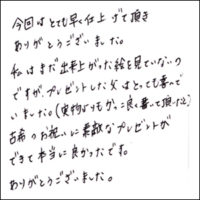 今回はとても早く仕上げて頂き
ありがとうございました。
私はまだ出来上がった絵を見ていないの
ですが、プレゼントした父はとっても喜んで
いました。(実物よりもかっこ良く書いて頂いたと)
古希のお祝いに素敵なプレゼントが
できて本当に良かったです。
ありがとうございました。